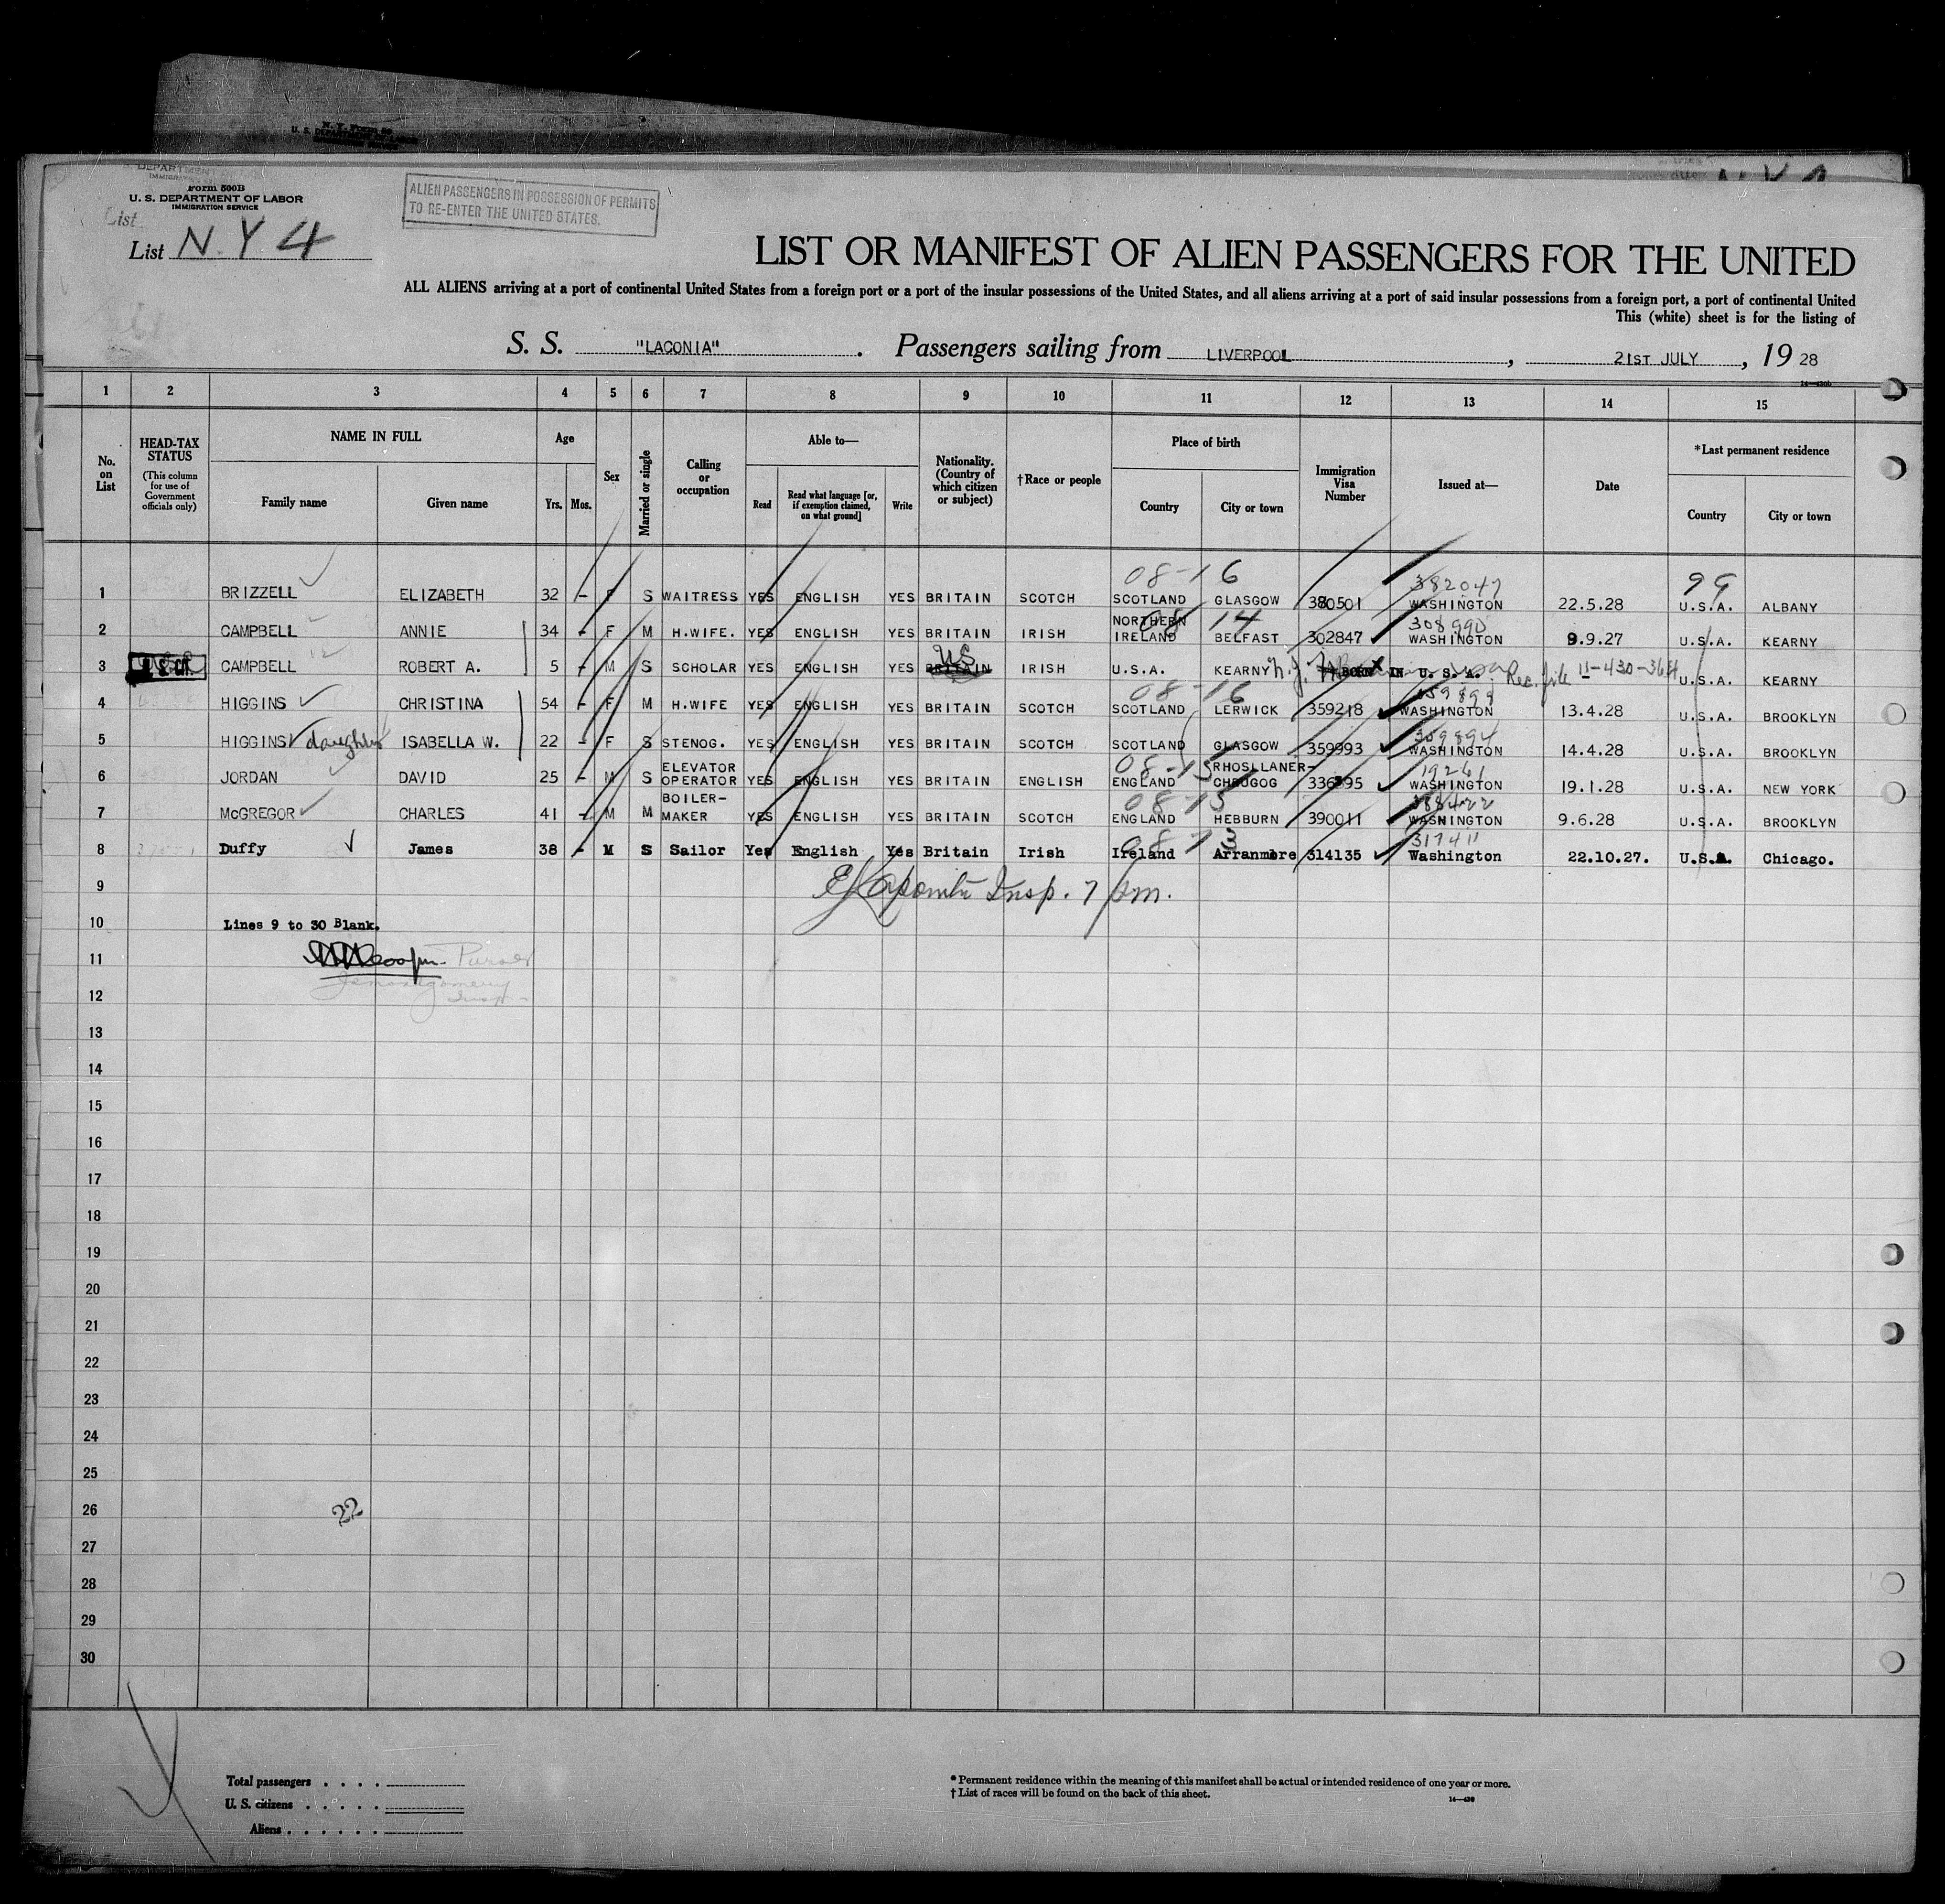 N. Y. Form 50
U. S. DEPARTMENT OF LABOR
IMMIGRATION SERVICE
DEPARTMENT
Form 500B
U. S. DEPARTMENT OF LABOR
IMMIGRATION SERVICE
List
List N Y 4
ALIEN PASSENGERS IN POSSESSION OF PERMITS
TO RE-ENTER THE UNITED STATES.
LIST OR MANIFEST OF ALIEN PASSENGERS FOR THE UNITED
ALL ALIENS arriving at a port of continental United States from a foreign port or a port of the insular possessions of the United States, and all aliens arriving at a port of said insular possessions from a foreign port, a port of continental United
This (white) sheet is for the listing of
S. S. "LACONIA" . Passengers sailing from LIVERPOOL , 21ST JULY , 19 28
1 2 3 4 5 6 7 8 9 10 11 12 13 14 15
No. on List
HEAD-TAX STATUS (This column for use of Government officials only)
NAME IN FULL
Family name Given name
Age
Yrs. Mos.
Sex
Married or single
Calling or occupation
Able to—
Read
Read what language [or, if exemption claimed, on what ground]
Write
Nationality. (Country of which citizen or subject)
†Race or people
Place of birth
Country City or town
Immigration Visa Number
Issued at—
Date
*Last permanent residence
Country City or town
08-16 382047 99
1 BRIZZELL ELIZABETH 32 - F S WAITRESS YES ENGLISH YES BRITAIN SCOTCH SCOTLAND GLASGOW 380501 WASHINGTON 22.5.28 U.S.A. ALBANY
08 14 308990
2 CAMPBELL ANNIE 34 - F M H.WIFE. YES ENGLISH YES BRITAIN IRISH NORTHERN IRELAND BELFAST 302847 WASHINGTON 9.9.27 U.S.A. KEARNY
US
3 CAMPBELL ROBERT A. 5 - M S SCHOLAR YES ENGLISH YES BRITAIN IRISH U.S.A. KEARNY N.J. BORN IN U.S.A. Rec. file U.S.A. KEARNY
08-16
4 HIGGINS CHRISTINA 54 - F M H.WIFE YES ENGLISH YES BRITAIN SCOTCH SCOTLAND LERWICK 359218 WASHINGTON 13.4.28 U.S.A. BROOKLYN
5 HIGGINS daughter ISABELLA W. 22 - F S STENOG. YES ENGLISH YES BRITAIN SCOTCH SCOTLAND GLASGOW 359993 WASHINGTON 14.4.28 U.S.A. BROOKLYN
08-15 19261
6 JORDAN DAVID 25 - M S ELEVATOR OPERATOR YES ENGLISH YES BRITAIN ENGLISH ENGLAND RHOSLLANER-CHRUGOG WASHINGTON 19.1.28 U.S.A. NEW YORK
08-15
7 McGREGOR CHARLES 41 - M M BOILER-MAKER YES ENGLISH YES BRITAIN SCOTCH ENGLAND HEBBURN 390011 WASHINGTON 9.6.28 U.S.A. BROOKLYN
08-13 317411
8 Duffy James 38 - M S Sailor Yes English Yes Britain Irish Ireland Arranmore 314135 Washington 22.10.27. U.S.A. Chicago.
9 Insp. 7 pm.
10 Lines 9 to 30 Blank.
11 Purser
12 Insp
13
14
15
16
17
18
19
20
21
22
23
24
25
26 22
27
28
29
30
Total passengers . . . .
U. S. citizens . . . . .
Aliens . . . . . .
* Permanent residence within the meaning of this manifest shall be actual or intended residence of one year or more.
† List of races will be found on the back of this sheet.
14—430